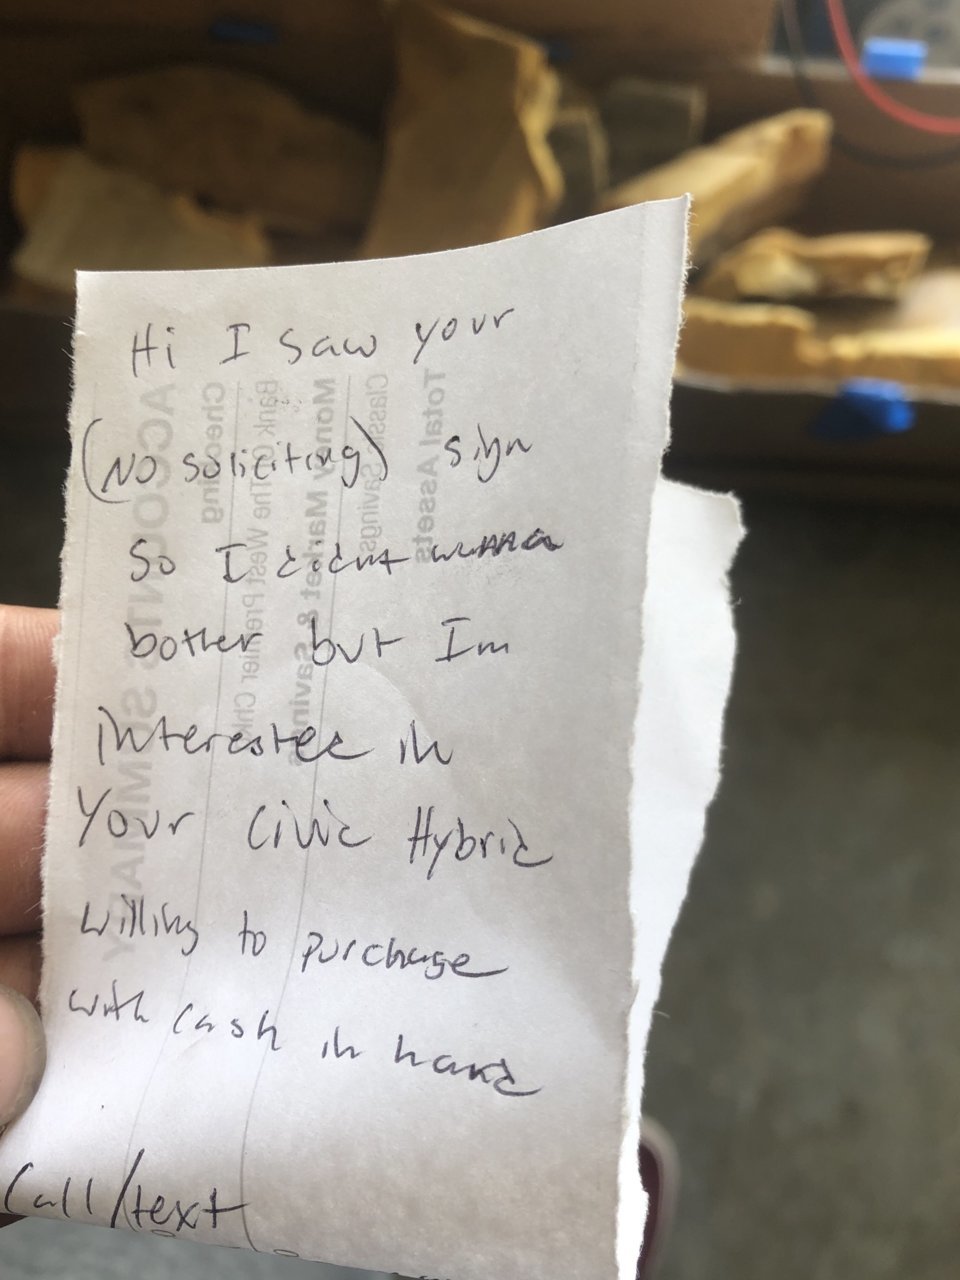 Hi I saw your
(No soliciting) sign
So I didnt wanna
bother but Im
interested in
Your Civic Hybrid
willing to purchase
with cash in hand
Call/text
ACCOUNTS SUMMARY
Checking
Bank Of The West Premier Ch
Money Market & Savings
Classic Savings
Total Assets